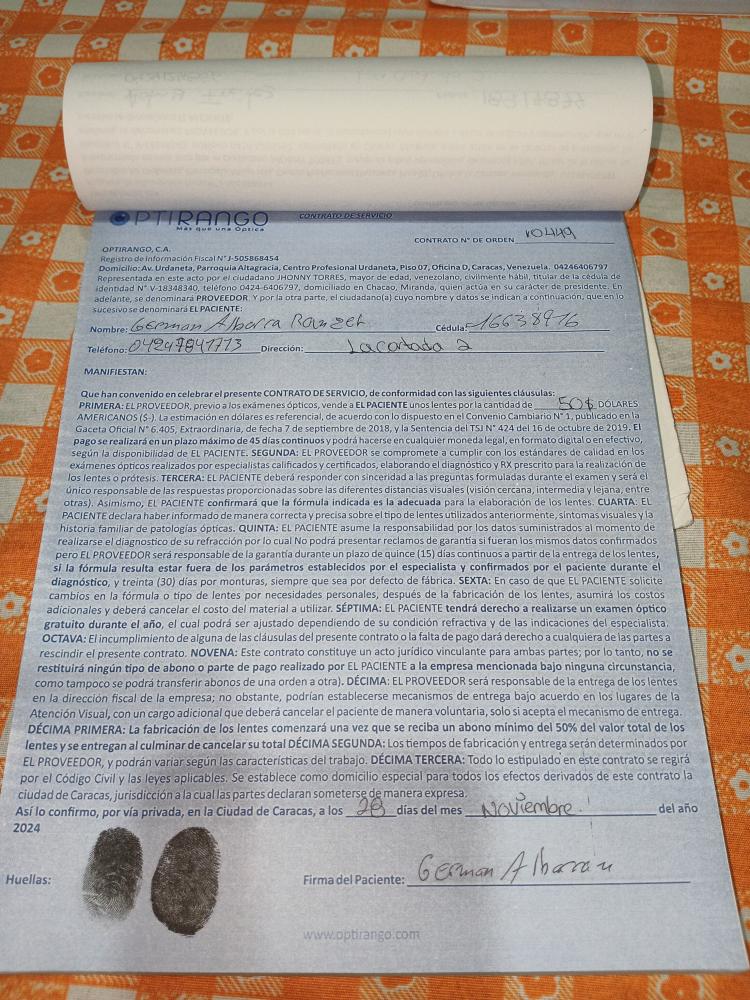 OPTIRANGO
Más que una Óptica
CONTRATO DE SERVICIO
CONTRATO N° DE ORDEN 10449
OPTIRANGO, C.A.
Registro de Información Fiscal N° J-505868454
Domicilio: Av. Urdaneta, Parroquia Altagracia, Centro Profesional Urdaneta, Piso 07, Oficina D, Caracas, Venezuela. 04246406797
Representada en este acto por el ciudadano JHONNY TORRES, mayor de edad, venezolano, civilmente hábil, titular de la cédula de
identidad N° V-18348340, teléfono 0424-6406797, domiciliado en Chacao, Miranda, quien actúa en su carácter de presidente. En
adelante, se denominará PROVEEDOR. Y por la otra parte, el ciudadano(a) cuyo nombre y datos se indican a continuación, que en lo
sucesivo se denominará EL PACIENTE:
Nombre: German Albarra Cédula: 16638916
Teléfono: 04247841713 Dirección: La cortada 2
MANIFIESTAN:
Que han convenido en celebrar el presente CONTRATO DE SERVICIO, de conformidad con las siguientes cláusulas:
PRIMERA: EL PROVEEDOR, previo a los exámenes ópticos, vende a EL PACIENTE unos lentes por la cantidad de 50$ DÓLARES
AMERICANOS ($-). La estimación en dólares es referencial, de acuerdo con lo dispuesto en el Convenio Cambiario N° 1, publicado en la
Gaceta Oficial N° 6.405, Extraordinaria, de fecha 7 de septiembre de 2018, y la Sentencia del TSJ N° 424 del 16 de octubre de 2019. El
pago se realizará en un plazo máximo de 45 días continuos y podrá hacerse en cualquier moneda legal, en formato digital o en efectivo,
según la disponibilidad de EL PACIENTE. SEGUNDA: EL PROVEEDOR se compromete a cumplir con los estándares de calidad en los
exámenes ópticos realizados por especialistas calificados y certificados, elaborando el diagnóstico y RX prescrito para la realización de
los lentes o prótesis. TERCERA: EL PACIENTE deberá responder con sinceridad a las preguntas formuladas durante el examen y será el
único responsable de las respuestas proporcionadas sobre las diferentes distancias visuales (visión cercana, intermedia y lejana, entre
otras). Asimismo, EL PACIENTE confirmará que la fórmula indicada es la adecuada para la elaboración de los lentes. CUARTA: EL
PACIENTE declara haber informado de manera correcta y precisa sobre el tipo de lentes utilizados anteriormente, síntomas visuales y la
historia familiar de patologías ópticas. QUINTA: EL PACIENTE asume la responsabilidad por los datos suministrados al momento de
realizarse el diagnostico de su refracción por lo cual No podrá presentar reclamos de garantía si fueran los mismos datos confirmados
pero EL PROVEEDOR será responsable de la garantía durante un plazo de quince (15) días continuos a partir de la entrega de los lentes,
si la fórmula resulta estar fuera de los parámetros establecidos por el especialista y confirmados por el paciente durante el
diagnóstico, y treinta (30) días por monturas, siempre que sea por defecto de fábrica. SEXTA: En caso de que EL PACIENTE solicite
cambios en la fórmula o tipo de lentes por necesidades personales, después de la fabricación de los lentes, asumirá los costos
adicionales y deberá cancelar el costo del material a utilizar. SÉPTIMA: EL PACIENTE tendrá derecho a realizarse un examen óptico
gratuito durante el año, el cual podrá ser ajustado dependiendo de su condición refractiva y de las indicaciones del especialista.
OCTAVA: El incumplimiento de alguna de las cláusulas del presente contrato o la falta de pago dará derecho a cualquiera de las partes a
rescindir el presente contrato. NOVENA: Este contrato constituye un acto jurídico vinculante para ambas partes; por lo tanto, no se
restituirá ningún tipo de abono o parte de pago realizado por EL PACIENTE a la empresa mencionada bajo ninguna circunstancia,
como tampoco se podrá transferir abonos de una orden a otra). DÉCIMA: EL PROVEEDOR será responsable de la entrega de los lentes
en la dirección fiscal de la empresa; no obstante, podrían establecerse mecanismos de entrega bajo acuerdo en los lugares de la
Atención Visual, con un cargo adicional que deberá cancelar el paciente de manera voluntaria, solo si acepta el mecanismo de entrega.
DÉCIMA PRIMERA: La fabricación de los lentes comenzará una vez que se reciba un abono mínimo del 50% del valor total de los
lentes y se entregan al culminar de cancelar su total DÉCIMA SEGUNDA: Los tiempos de fabricación y entrega serán determinados por
EL PROVEEDOR, y podrán variar según las características del trabajo. DÉCIMA TERCERA: Todo lo estipulado en este contrato se regirá
por el Código Civil y las leyes aplicables. Se establece como domicilio especial para todos los efectos derivados de este contrato la
ciudad de Caracas, jurisdicción a la cual las partes declaran someterse de manera expresa.
Así lo confirmo, por vía privada, en la Ciudad de Caracas, a los 28 días del mes Noviembre del año
2024
Huellas:
Firma del Paciente: German Albarran
www.optirango.com